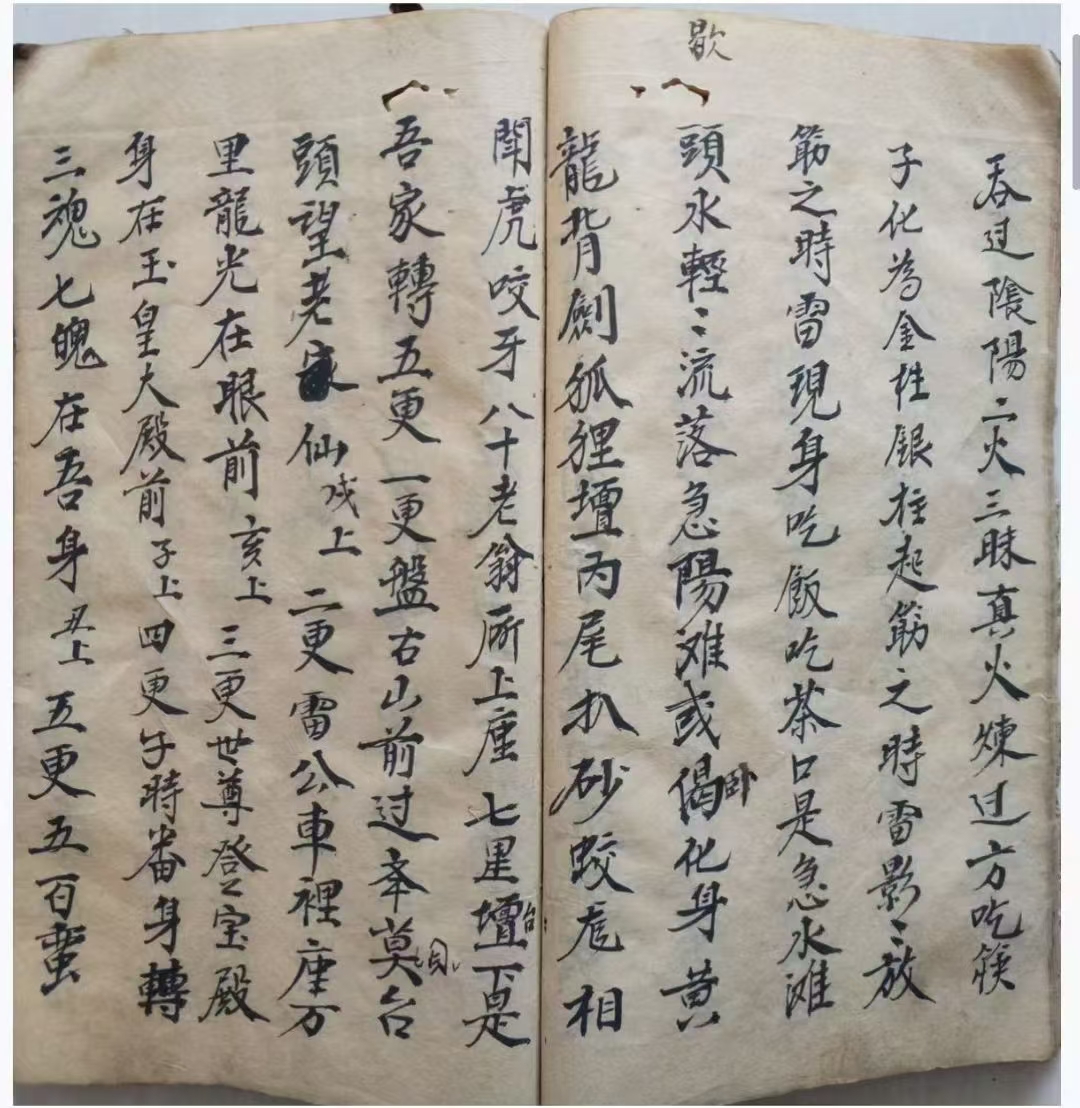 歇
吞过陰陽二火三昧真火煉过方吃筷
子化為金性銀柱起筯之時雷影〻放
筯之時雷現身吃飯吃茶口是急水滩
頭水輕〻流落急陽滩或偈卧化身黄
龍背劍狐狸壇内尾扒砂蛟虎相
闘虎咬牙八十老翁所上座七里壇台下是
吾家轉五更一更盤右山前过奉莫台
頭望老家仙戌上二更雷公車裡座万
里龍光在眼前亥上三更世尊登宝殿
身在玉皇大殿前子上四更午時番身轉
三魂七魄在吾身丑上五更五百蛮